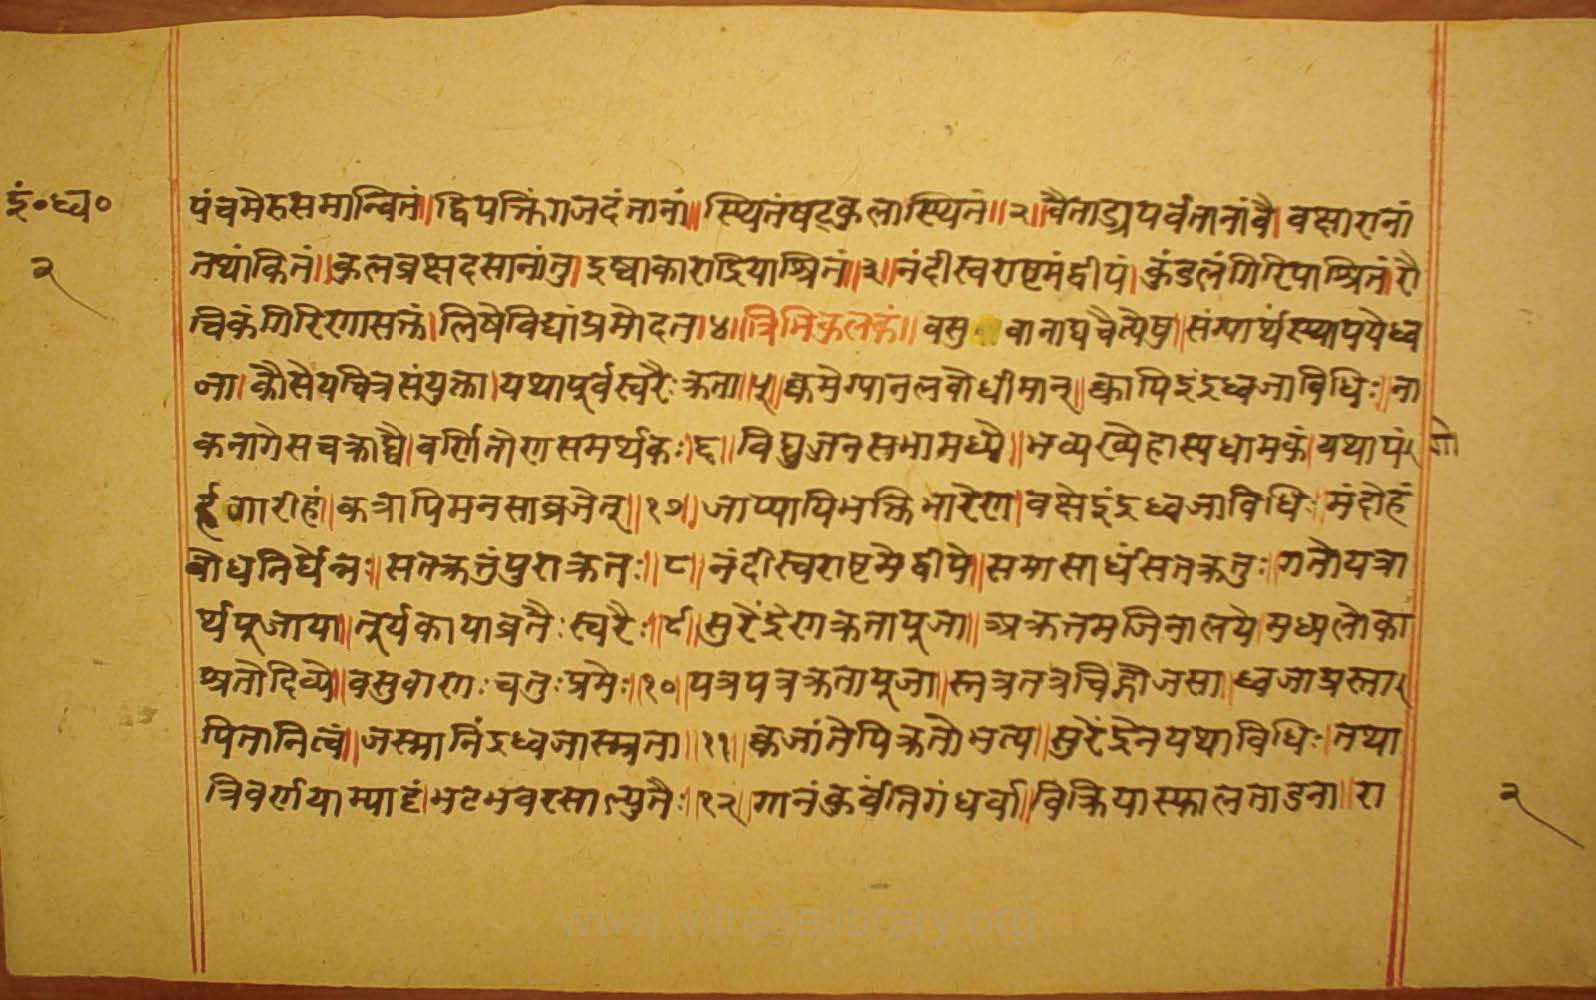 इं॰ध्व॰
२
पंचमेरुसमान्वितं।द्विपक्तिंगजदंतानां॥स्थितंषट्कुलास्थितं॥२॥वैताड्यपर्वतानांवै।वक्षारानां
तथांकितं॥कुलव्रक्षदसानांतु।इष्वाकाराद्रियाश्रितं॥३॥नंदीस्वराष्टमंद्वीपं।कुंडलंगिरिपाश्रितं।रौ
चिकंगिरिरणासक्तं।लिषेविद्यांप्रमोदत।४॥त्रिमिकुलकं॥वसु वानाघचैत्येषु॥संग्पार्थंस्थापयेध्व
जा।कौसेयचित्रसंयुक्ता।यथापूर्वस्वरैःक्रता॥५॥क्रमेग्पानलवोधीमान्॥क्कापिइंद्रध्वजाविधिः॥ना
कनागेसचक्राद्यै।वर्णितोणसमर्थकः।६॥विद्युजनसभामध्ये॥भव्यष्यैहास्यधामकं।यथापं गो
गारीहं।कत्रापिमनसाव्रजेत्॥१७॥जाप्यापिभक्तिभारेण।वक्षेइंद्रध्वजाविधिः।मंदोहं
वोधनिर्घेन्नः॥सतक्रतुंपुराक्रतः॥८॥नंदीस्वराष्टमेद्वीपे॥समासार्धंसतक्रतुः॥गतोयत्रा
र्थपूजाया॥तूर्यकायाव्रतैःस्वरैः॥९॥सुरेंद्रेणक्रतापूजा॥अक्रतमजिनालये।मध्यलोका
श्रतौदिव्ये॥वसुवाणःचतुःप्रमेः॥१०॥पत्रपत्रक्रतापूजा॥स्तत्रतत्रचिह्नौजसा॥ध्वजाप्रस्ता
पितानित्वं॥जस्मानिंद्रध्वजास्म्रता॥११॥केजांतेपिक्रतोभत्य॥सुरेंद्रेनयथाविधिः।तथा
त्रिवर्णयाम्पाहं।भटभवरसात्युतैः॥१२॥गानंकुर्वंतिगंधर्वा॥विक्रियास्फालताडना॥रा
२